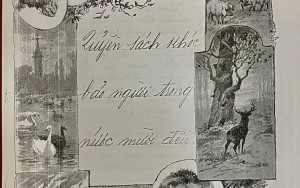 Quyển sách khóc
bảo người trong
nước mười đều